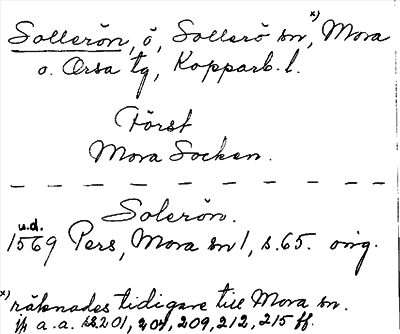 Sollerön, ö, Sollerö sn,ˣ⁾ Mora
o. Orsa tg, Kopparb. l.
Först
Mora Socken.
Solerön.
u.d.
1569 Pers, Mora sn 1, s. 65. orig.
ˣ⁾ räknades tidigare till Mora sn.
jfr a.a. ss 201, 204, 209, 212, 215 ff.